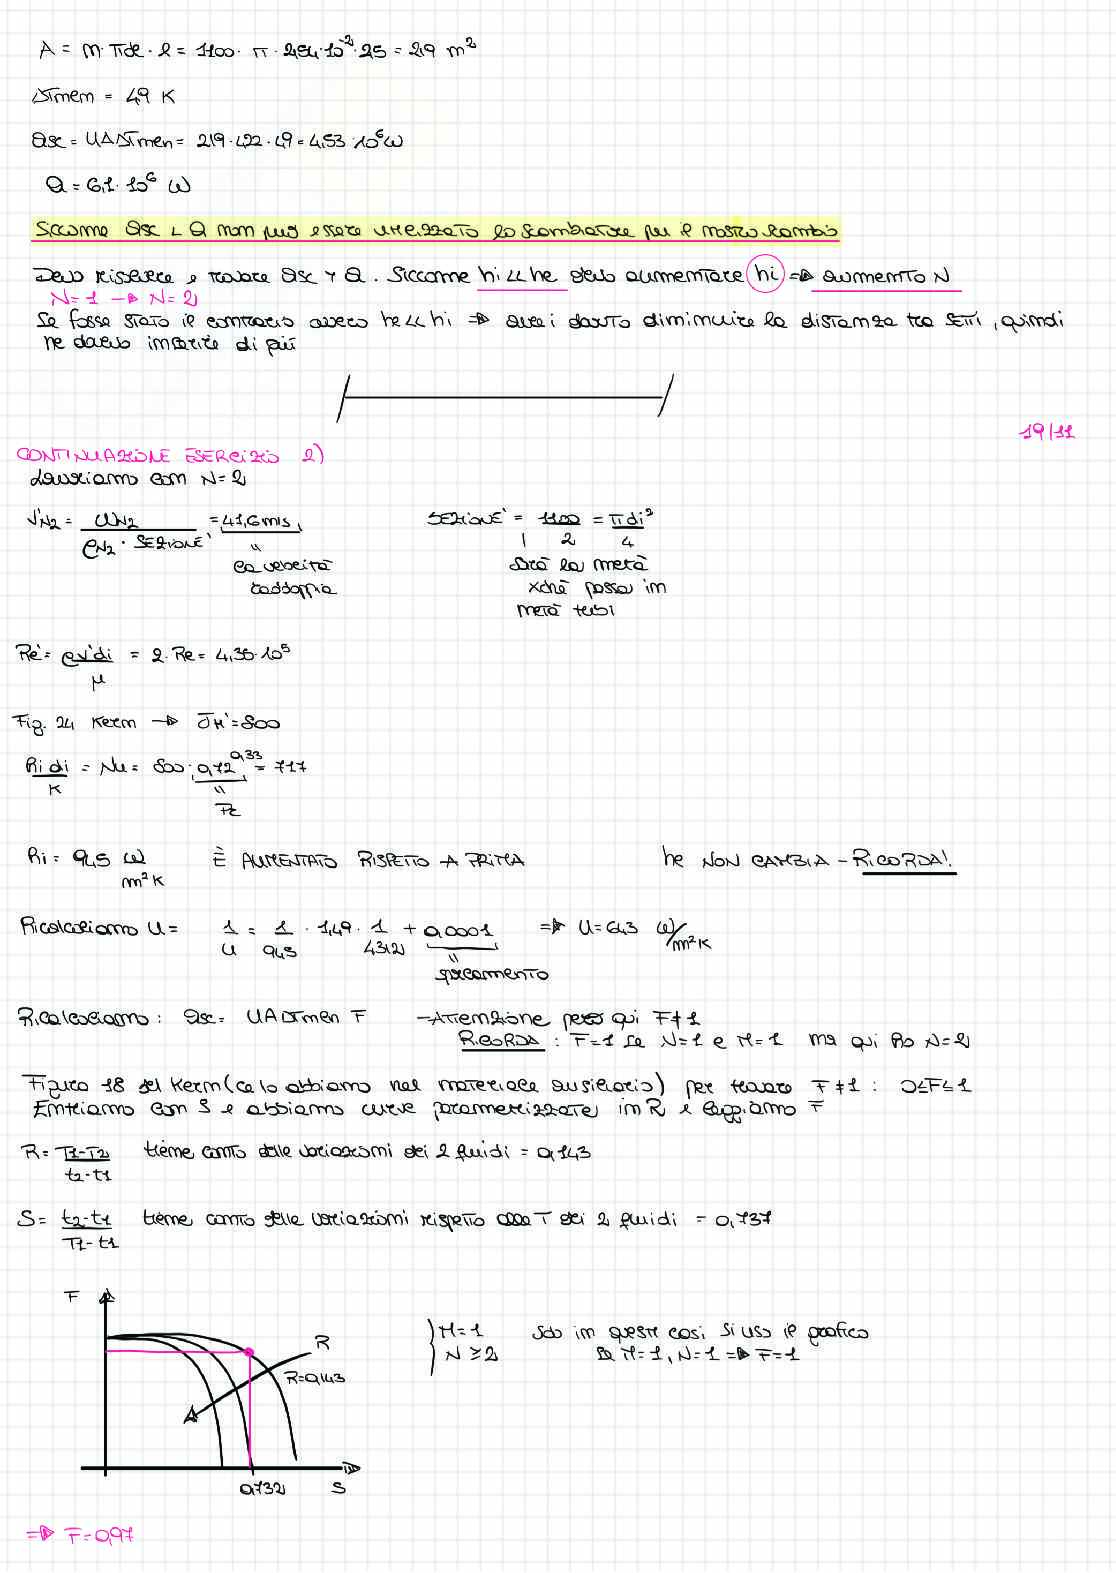 A = m · πde · l = 1100 · π · 2,54·10⁻² · 25 = 219 m²
ΔTmen = 4,9 K
Qsc = UAΔTmen = 219 · 422 · 49 = 4,53 · 10⁶ W
Q = 6,1 · 10⁶ W
Siccome Qsc < Q non può essere utilizzato lo scambiatore per il nostro cambio
Devo risolvere e trovare Qsc > Q. Siccome hi << he devo aumentare hi => aumento N
N=1 → N=2
Se fosse stato il contrario ovvero he << hi => avrei dovuto diminuire la distanza tra setti, quindi
ne dovevo inserire di più
19/11
CONTINUAZIONE ESERCIZIO 2)
Lavoriamo con N=2
V'N2 = WN2 / (ρN2 · SEZIONE') = 41,6 m/s
SEZIONE' = 1100/2 = πdi²/4
la velocità raddoppia
sarà la metà xchè passa in metà tubi
Re' = ρv'di / μ = 2·Re = 4,35·10⁵
Fig. 24 Kern → JH' = 800
hi di / K = Nu = 800 · 0,72^0,33 = 717
Pr
hi = 945 W/m²K È AUMENTATO RISPETTO A PRIMA he NON CAMBIA - RICORDA!
Ricalcoliamo U = 1/U = 1/945 · 1,49 · 1/4312 + 0,0001 => U = 643 W/m²K
sporcamento
Ricalcoliamo: Qsc = UAΔTmen F → Attenzione però qui F≠1
RICORDA : F=1 se N=1 e M=1 ma qui ho N=2
Figura 18 del Kern (ce lo abbiamo nel materiale ausiliario) per trovare F≠1 : 0≤F≤1
Entriamo con S e abbiamo curve parametrizzate in R e leggiamo F
R = T1-T2 / t2-t1 tiene conto delle variazioni dei 2 fluidi = 0,143
S = t2-t1 / T1-t1 tiene conto delle variazioni rispetto alle T dei 2 fluidi = 0,737
F
R
R=0,143
0,732
S
M=1
N≥2
Solo in questi casi si usa il grafico
Se M=1, N=1 => F=1
=> F=0,97